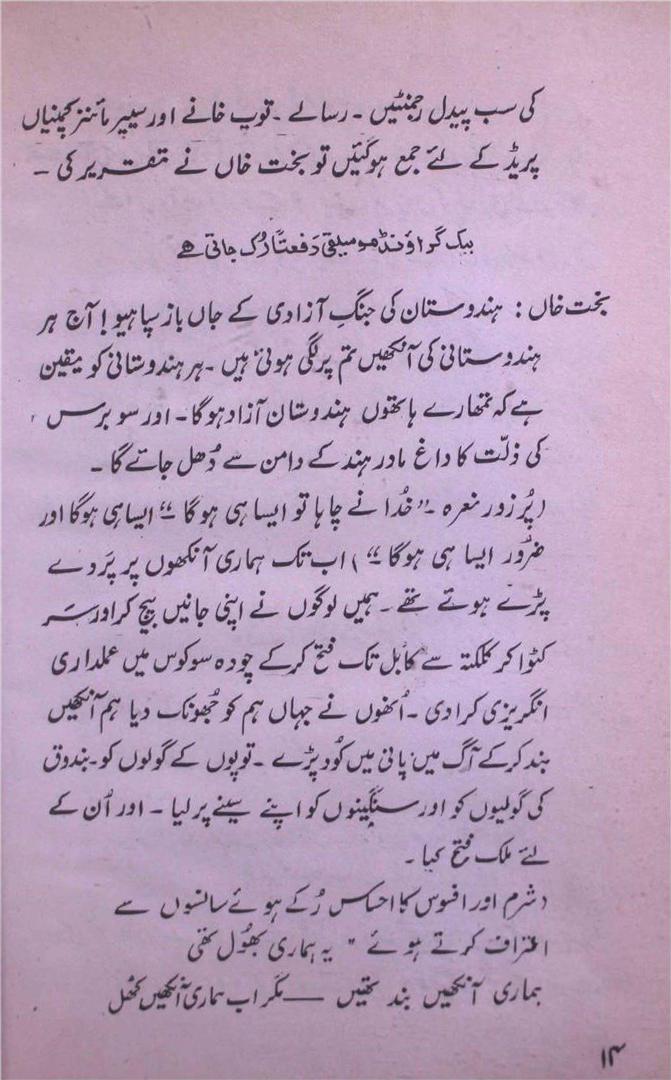 کی سب پیدل رجمنٹیں ۔ رسالے ۔ توپ خانے اور سیپر مائنز کمپنیاں
پریڈ کے لئے جمع ہوگئیں تو بخت خاں نے تقریر کی ۔
بیک گراؤنڈ موسیقی دفعتاً رُک جاتی ہے
بخت خاں : ہندوستان کی جنگِ آزادی کے جاں باز سپاہیو ! آج ہر
ہندوستانی کی آنکھیں تم پر لگی ہوئی ہیں ۔ ہر ہندوستانی کو یقین
ہے کہ تمھارے ہاتھوں ہندوستان آزاد ہوگا ۔ اور سو برس
کی ذلّت کا داغ مادر ہند کے دامن سے دُھل جائے گا ۔
(پُر زور نعرہ ۔ "خُدا نے چاہا تو ایسا ہی ہوگا ۔" ایسا ہی ہوگا اور
ضرور ایسا ہی ہوگا ۔") اب تک ہماری آنکھوں پر پَردے
پڑے ہوئے تھے ۔ ہمیں لوگوں نے اپنی جانیں بیچ کر اور سَر
کٹوا کر کلکتہ سے کابل تک فتح کر کے چودہ سو کوس میں عملداری
انگریزی کرا دی ۔ اُنھوں نے جہاں ہم کو جُھونک دیا ہم آنکھیں
بند کر کے آگ میں پانی میں کُود پڑے ۔ توپوں کے گولوں کو ۔ بندوق
کی گولیوں کو اور سنگینوں کو اپنے سینے پر لیا ۔ اور اُن کے
لئے ملک فتح کیا ۔
(شرم اور افسوس کا احساس رُکے ہوئے سانسوں سے
اعتراف کرتے ہوئے " یہ ہماری بھُول تھی
ہماری آنکھیں بند تھیں —— مگر اب ہماری آنکھیں کھُل
۱۴